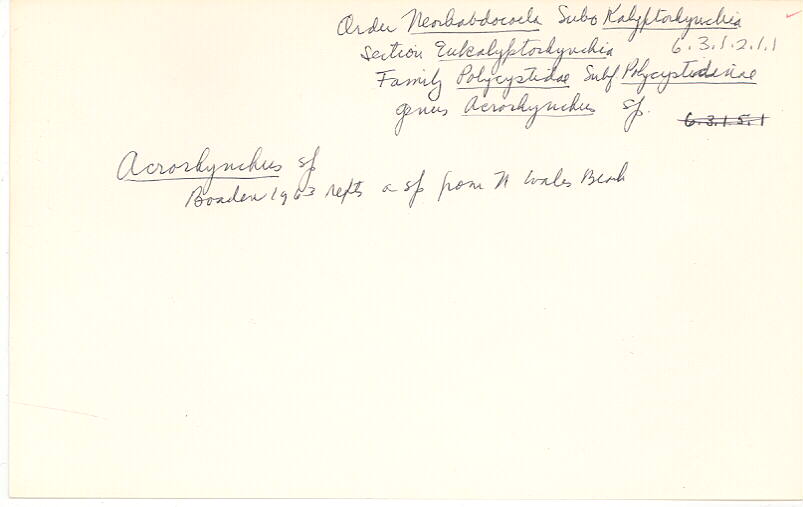 Order Neorhabdocoela Subo Kalyptorhynchia
Section Eukalyptorhynchia 6.3.1.2.1.1
Family Polycystidae Subf Polycystidinae
genus Acrorhynchus sp.
6.3.1.5.1
Acrorhynchus sp
Boaden 1963 repts a sp from N Wales Beach